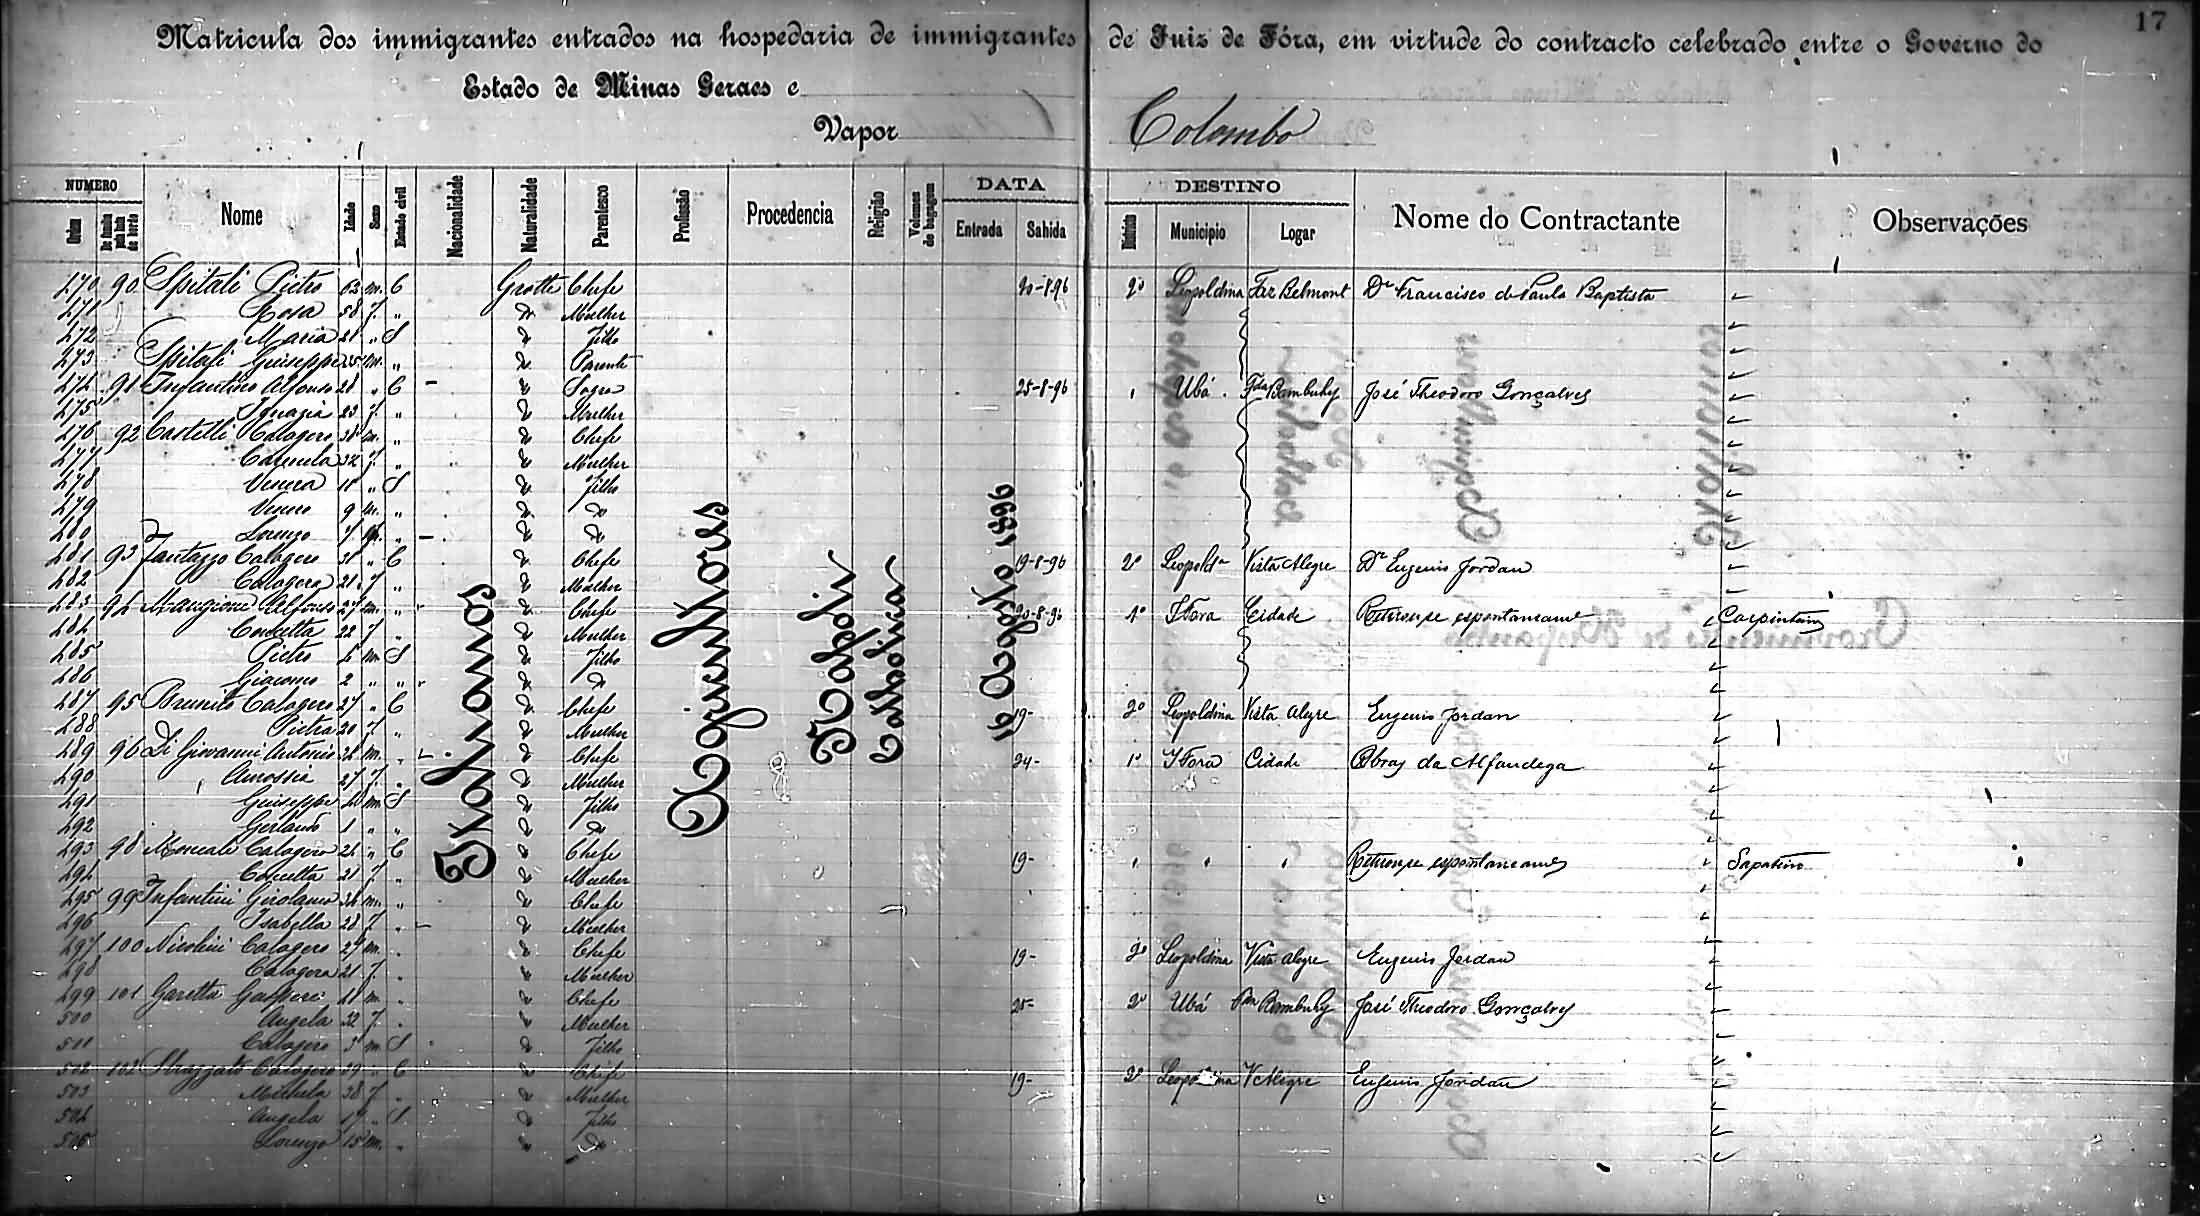 17
Matricula dos immigrantes entrados na hospedaria de immigrantes de Juiz de Fóra, em virtude do contracto celebrado entre o Governo do
Estado de Minas Geraes e
Vapor Colombo
NUMERO DATA DESTINO
Ordem Nome Idade Sexo Estado civil Nacionalidade Naturalidade Parentesco Profissão Procedencia Religião Volumes de bagagem Entrada Sahida Districto Municipio Logar Nome do Contractante Observações
Italianos Agricultores Napoli Catholica 16 Agosto 1896
470 90 Spitali Pietro 62 m. C Grotte Chefe 20-8-96 2º Leopoldina Faz Belmont Dr Francisco de Paula Baptista
471 Rosa 58 f. " Do Mulher
472 Maria 21 " S Do Filho
473 Spitali Giuseppe 35 m. " Do Parente
474 91 Infantino Alfonso 28 " C Do Sogro 25-8-96 " Ubá Fda Bambuhy José Theodoro Gonçalves
475 Ignazia 23 f. " Do Mulher
476 92 Castelli Calogero 38 m. " Do Chefe
477 Carmela 32 f. " Do Mulher
478 Venera 11 " S Do Filho
479 Venero 9 m. " Do Do
480 Lorenzo 7 m. " Do Do
481 93 Fantazzo Calogero 31 " C Do Chefe 19-8-96 2º Leopolda Vista Alegre Dr Eugenio Jordan
482 Calogera 21 f " Do Mulher
483 94 Mangione Alfonso 27 m. " Do Chefe 20-8-96 1º J Fora Cidade Retirou-se espontaneame Carpinteiro
484 Concetta 22 f " Do Mulher
485 Pietro 4 m S Do Filho
486 Giacomo 2 " " Do Do
487 95 Brunito Calogero 27 " C Do Chefe 19- 2º Leopoldina Vista Alegre Eugenio Jordan
488 Pietra 20 f. " Do Mulher
489 96 Di Giovanni Antonio 24 m. " Do Chefe 24- 1º J Fora Cidade Obras da Alfandega
490 27 f. " Do Mulher
491 Giuseppe 4 m. S Do Filho
492 Gerlando 1 " " Do Do
493 98 Moncale Calogero 24 " C Do Chefe 19- " " " Retirou-se espontaneame Sapateiro
494 Concetta 21 f. " Do Mulher
495 99 Infantini Girolamo 34 m. " Do Chefe
496 Isabella 28 f. " Do Mulher
497 100 Nicolini Calogero 27 m. " " Chefe 19- 2º Leopoldina Vista Alegre Eugenio Jordan
498 Calogera 21 f. " " Mulher
499 101 Garetta Gaspare 41 m. " " Chefe 25- 2º Ubá Fda Bambuhy José Theodoro Gonçalves
500 Angela 32 f. " " Mulher
501 Calogero 3 m S Do Filho
502 102 Strazzato Calogero 39 " C " Chefe 19- 2º Leopoldina V Alegre Eugenio Jordan
503 Michela 38 f. " " Mulher
504 Angela 17 " S " Filho
505 Lorenzo 15 m. " " Do